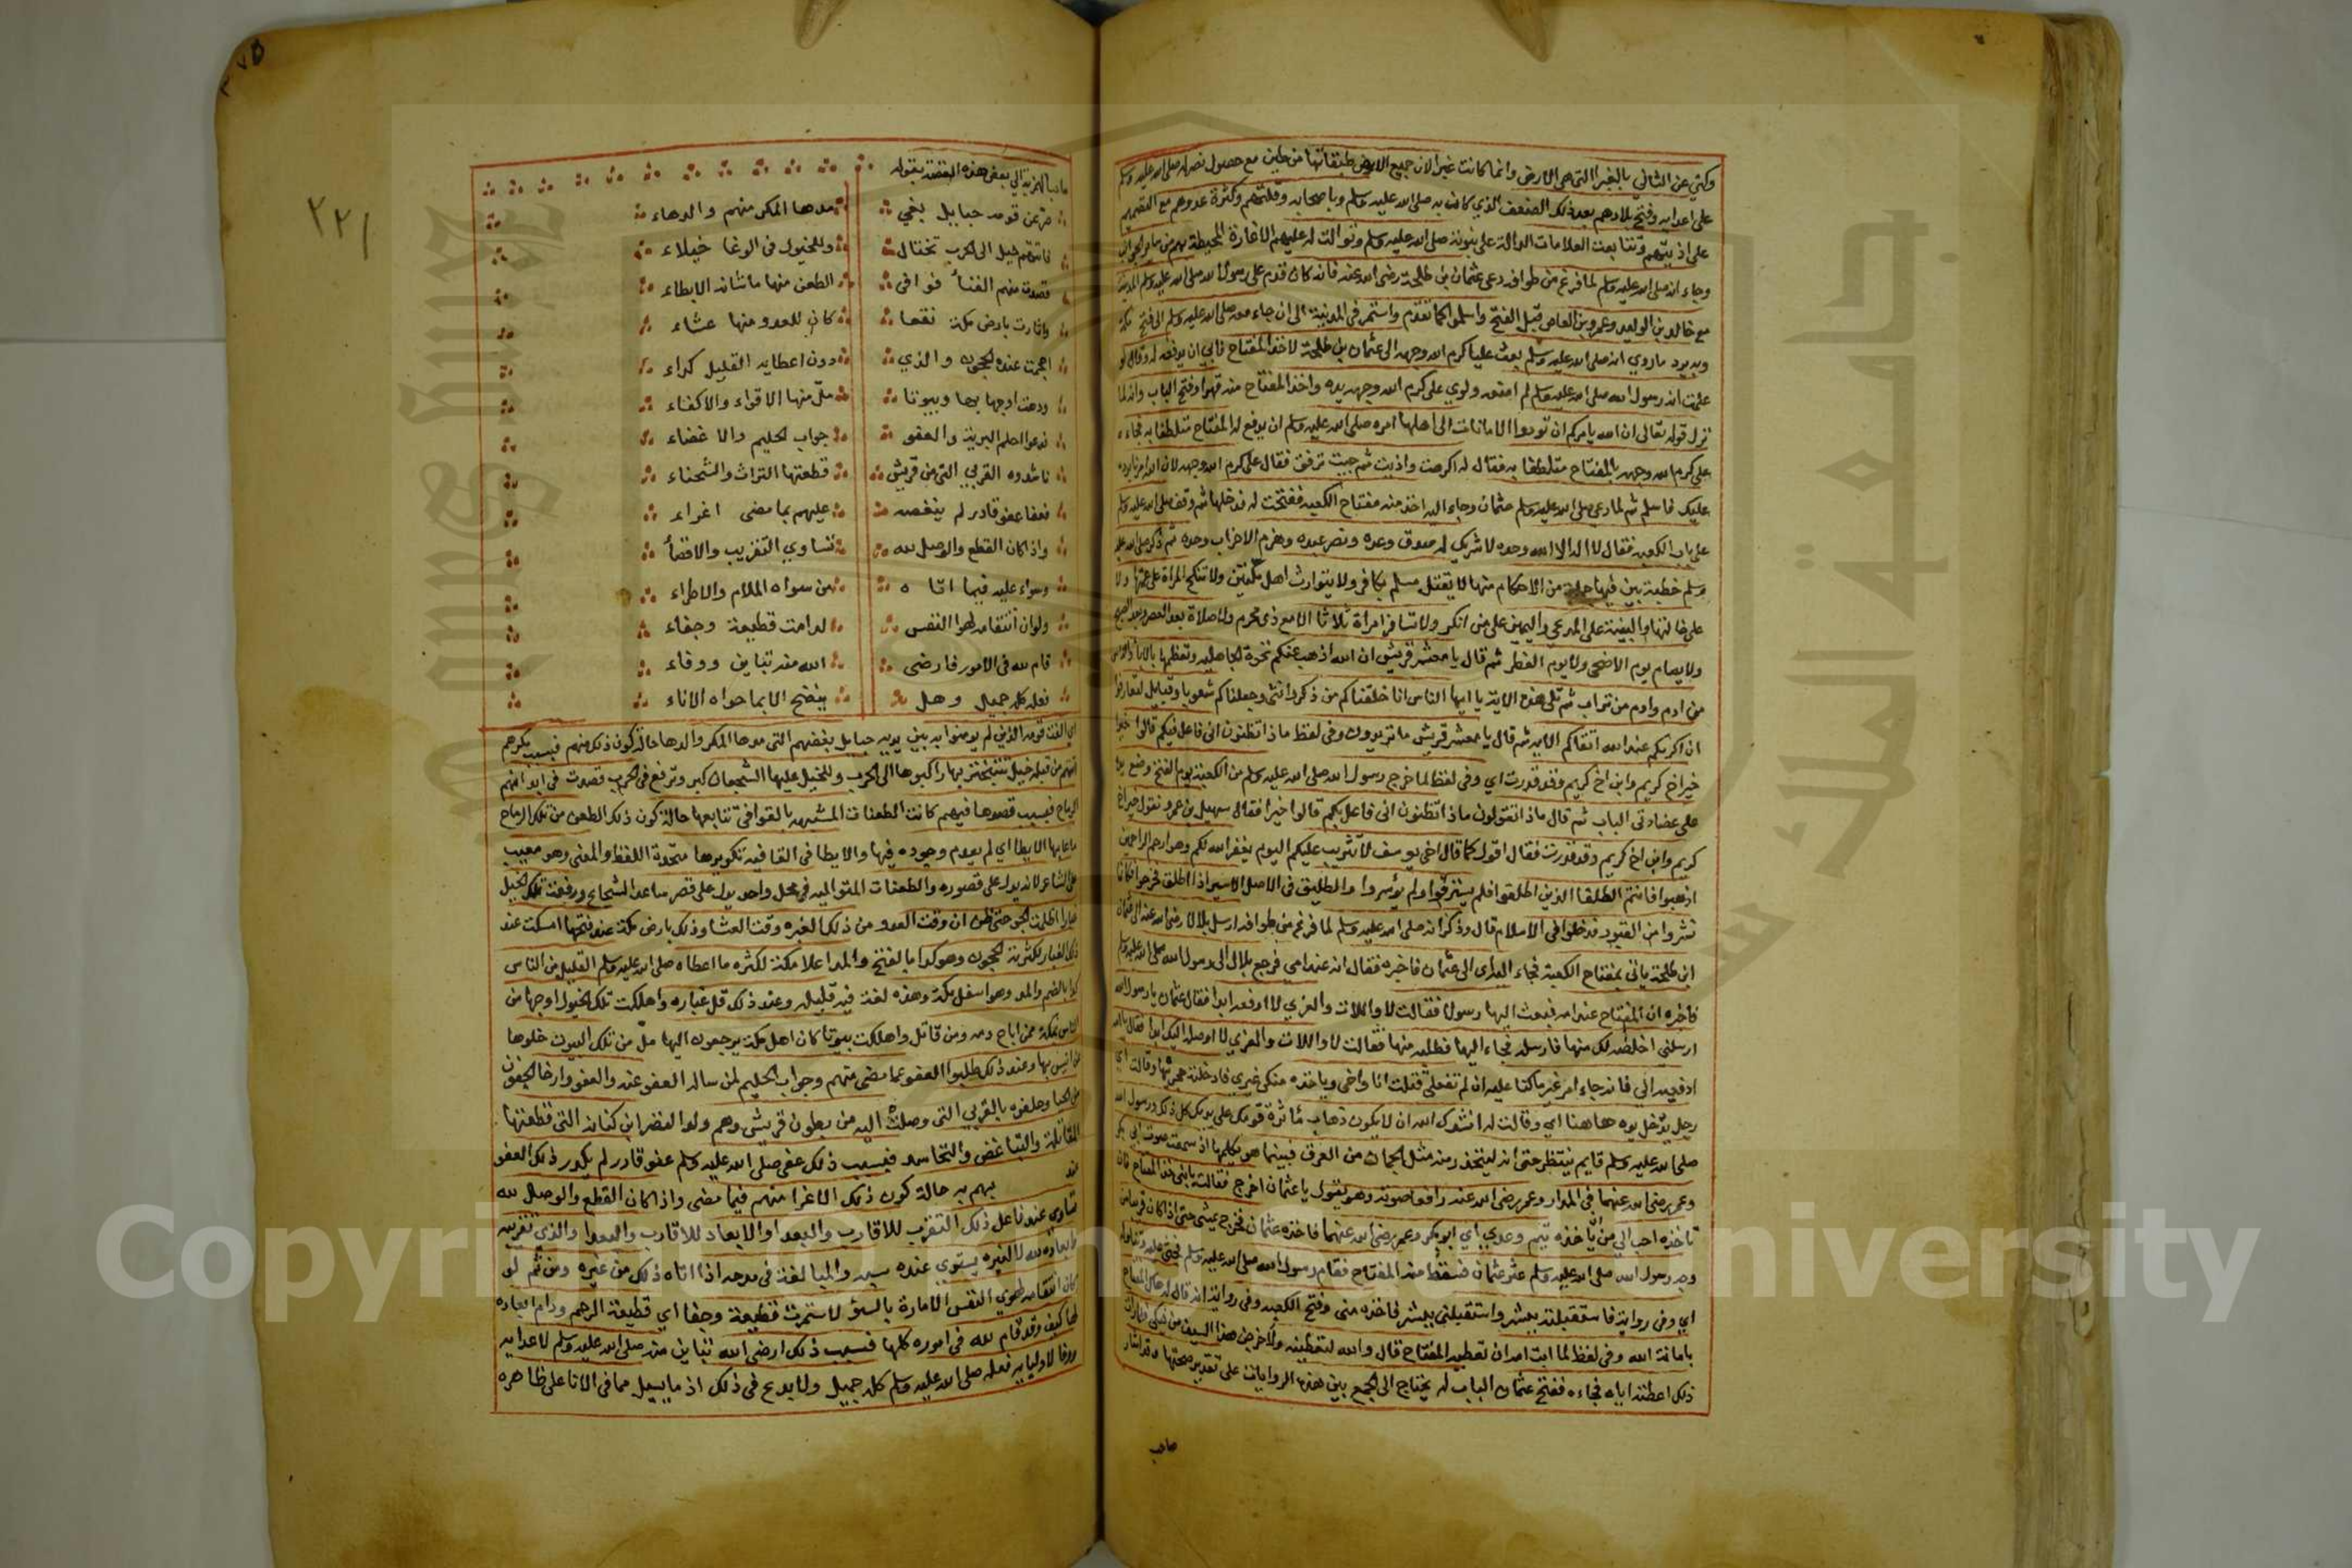 وكني عن الثاني بالغبرا التي هي الارض وانما كانت غبرا لان جميع الارض طبقاتها من طين مع حصول نصره صلى الله عليه وسلم
على اعدايه وفتح بلادهم بعد ذلك الضعف الذي كان به صلى الله عليه وسلم وباصحابه وقلتهم وكثرة عدوهم مع
على اذيتهم وتتابعت العلامات الدالة على نبوته صلى الله عليه وسلم وتوالت له عليهم الاغارة المحيطة بهم من
وجاء انه صلى الله عليه وسلم لما فرغ من طوافه دعى عثمان بن طلحة رضى الله عنه فانه كان قدم على رسول الله صلى الله عليه وسلم المدينة
مع خالد بن الوليد وعمرو بن العاص قبل الفتح واسلموا كما تقدم واستمر في المدينة الى ان جاء معه صلى الله عليه وسلم الى فتح مكة
وبه يرد ما روي انه صلى الله عليه وسلم بعث عليا كرم الله وجهه الى عثمان بن طلحة لاخذ المفتاح فابي ان يدفعه له وقال لو
علمت انه رسول الله صلى الله عليه وسلم لم امنعه ولوي على كرم الله وجهه يده واخذ المفتاح منه قهرا وفتح الباب وانه لما
نزل قوله تعالى ان الله يامركم ان تودوا الامانات الى اهلها امره صلى الله عليه وسلم ان يدفع له المفتاح متلطفا به فجاء
على كرم الله وجهه بالمفتاح متلطفا به فقال له اكرهت واذيت ثم جيت ترفق فقال على كرم الله وجهه لان الله امرنا برده
عليك فاسلم ثم لما دعى صلى الله عليه وسلم عثمان وجاء اليه اخذ منه مفتاح الكعبه ففتحت له فدخلها ثم وقف صلى الله عليه وسلم
على باب الكعبه فقال لا اله الا الله وحده لا شريك له صدق وعده ونصر عبده وهزم الاحزاب وحده ثم ذكر صلى الله عليه
وسلم خطبة بين فيها جملة من الاحكام منها لا يقتل مسلم بكافر ولا يتوارث اهل ملتين ولا تنكح المراة على عمتها ولا
على خالتها والبينة على المدعي واليمين على من انكر ولا تسافر امراة ثلاثا الا مع ذى محرم ولا صلاة بعد العصر وبعد الصبح
ولا يصام يوم الاضحى ولا يوم الفطر ثم قال يا معشر قريش ان الله اذهب عنكم نخوة الجاهلية وتعظمها بالابا والناس
من ادم وادم من تراب ثم تلى هذه الاية يا ايها الناس انا خلقناكم من ذكر وانثى وجعلناكم شعوبا وقبايل لتعارفوا
ان اكرمكم عند الله اتقاكم الايه ثم قال يا معشر قريش ما ترون وفى لفظ ماذا تظنون انى فاعل فيكم قالوا خيرا
خير اخ كريم وابن اخ كريم وقد قدرت اي وفى لفظ لما خرج رسول الله صلى الله عليه وسلم من الكعبة يوم الفتح وضع يده
على عضادتى الباب ثم قال ماذا تقولون ماذا تظنون انى فاعل بكم قالوا خيرا فقال سهيل بن عمرو نقول خيرا
كريم وابن اخ كريم وقد قدرت فقال اقول كما قال اخي يوسف لا تثريب عليكم اليوم يغفر الله لكم وهو ارحم الراحمين
اذهبوا فانتم الطلقا الذين اطلقوا فلم يسترقوا ولم يؤسروا والطليق فى الاصل الاسير اذا اطلق فخرجوا فكانما
نشروا من القبور فدخلوا فى الاسلام قال وذكر انه صلى الله عليه وسلم لما فرغ من طوافه ارسل بلالا رضى الله عنه الى عثمان
ابن طلحة ياتى بمفتاح الكعبة فجاء بلال الى عثمان فاخبره فقال انه عند امي فرجع بلال الى رسول الله صلى الله عليه وسلم
فاخبره ان المفتاح عند امه فبعث اليها رسولا فقالت لا واللات والعزي لا ادفعه ابدا فقال عثمان يا رسول الله
ارسلني اخلصه لك منها فارسله فجاء اليها فطلبه منها فقالت لا واللات والعزي لا اوصله اليك ابدا فقال يا امه
ادفعيه الي فانه جاء امر غير ما كنا عليه ان لم تفعلى قتلت انا واخى وياخذه منكى غيري فادخلته حجرتها وقالت اي
رجل يدخل يده هاهنا اي وقالت له انشدك الله ان لا يكون ذهاب ماثرة قومك على يديك كل ذلك ورسول الله
صلى الله عليه وسلم قايم ينتظر حتى انه ليتحذر منه مثل الجمان من العرق فبينما هو يكلمها اذ سمعت صوت ابي بكر
وعمر رضى الله عنهما في الدار وعمر رضى الله عنه رافعا صوته وهو يقول يا عثمان اخرج فقالت يا بنى خذ المفتاح فان
تاخذه احب الي من ان ياخذه تيم وعدي اي ابو بكر وعمر رضى الله عنهما فاخذه عثمان فخرج يمشى حتى اذا كان قريبا من
وجه رسول الله صلى الله عليه وسلم عثر عثمان فسقط منه المفتاح فقام رسول الله صلى الله عليه وسلم فحنى عليه وتناوله
اي وفى رواية فاستقبلته ببشر واستقبلنى ببشر فاخذه منى وفتح الكعبه وفى رواية انه قال له هاك المفتاح
بامانة الله وفى لفظ لما ابت امه ان تعطيه المفتاح قال والله لتعطينه ولاخرجن هذا السيف من
ذلك اعطته اياه فجاءه ففتح عثمان الباب له يحتاج الى الجمع بين هذه الروايات على تقدير صحتها وقد اشار
صاحب
٢٢١
صاحب الهمزية الي بعض هذه القصة بقوله
صرعت قومه حبايل بغي مدها المكر منهم والدهاء
فاتتهم خيل الى الحرب تختال وللخيول فى الوغا خيلاء
قصدت منهم القنا فقوافى الطعن منها ما شانه الايطاء
واثارت بارض مكة نقعا كان للعدو منها عشاء
احجمت عنده الحجون والذي دون اعطايه القليل كداء
ودهت اوجها بها وبيوتا مل منها الاقواء والاكفاء
فدعوا احلم البرية والعفو جواب الحليم والاغضاء
ناشدوه القربي التى من قريش قطعتها التراث والشحناء
فعفا عفو قادر لم ينغصه عليهم بما مضى اغراء
واذا كان القطع والوصل لله تساوي التقريب والاقصأ
وسواء عليه فيما اتاه من سواه الملام والاطراء
ولو ان انتقامه لهوا النفس لدامت قطيعة وجفاء
قام لله فى الامور فارضى الله منه تباين ووفاء
فعله كله جميل وهل ينضح الا بما حواه الاناء
اي القت قومه الذين لم يومنوا به بين يديه حبايل بغضهم التى مدها المكر والدها حالة كون ذلك منهم فبسبب مكرهم
اتتهم من قبله خيل تتبختر بها راكبوها الى الحرب وللخيل عليها الشجعان كبر وترفع فى الحرب قصدت فى ابدانهم
الرماح فبسبب قصدها فيهم كانت الطعنات المشبهه بالقوافى تتابعها حالة كون ذلك الطعن من تلك الرماح
ما عابها الايطا اي لم يعدم وجوده فيها والايطا فى القافيه تكويرها متحدة اللفظ والمعنى وهو معيب
على الشاعر لانه يدل على قصوره والطعنات المتواليه فى محل واحد يدل على قصر ساعد الشجاع ورفعت تلك الخيل
غبارا اظلمت الجو حتى ظن ان وقت العدو من ذلك الغبره وقت العشا وذلك بارض مكة عند فتحها امسكت عند
ذلك الغبار لكثرته الحجون وهو كدا بالفتح والمد اعلا مكة لكثره ما اعطاه صلى الله عليه وسلم القليل من الناس
كدا بالضم والمد وهو اسفل مكة وهذه لغة فيه قليله وعند ذلك قل غباره واهلكت تلك الخيول اوجها من
الناس بمكة ممن اباح دمه ومن قاتل واهلكت بيوتا كان اهل مكة يرجعون اليها مل من تلك البيوت خلوها
من انيس بها وعند ذلك طلبوا العفو عما مضى منهم وجواب الحليم لمن ساله العفو عنه والعفو وارخا الجفون
من الحيا وحلفوه بالقربي التى وصلت اليه من بطون قريش وهم ولد النضر ابن كنانه التى قطعتها
المقاتلة والتباغض والتحاسد فبسبب ذلك عفى صلى الله عليه وسلم عفو قادر لم يكدر ذلك العفو
بهم به حالة كون ذلك الاغرا منهم فيما مضى واذا كان القطع والوصل لله
تساوي عند فاعل ذلك التقرب للاقارب والبعدا والابعاد للاقارب والبعدا والذي تقريبه
وابعاده لله لا لغيره يستوي عنده سبه والمبالغة فى مدحه اذا اتاه ذلك من غيره ومن ثم لو
كان انتقامه لهوي النفس الامارة بالسؤ لاستمرت قطيعة وجفا اي قطيعة الرحم ودام ابعاده
لها كيف وقد قام لله فى اموره كلها فبسبب ذلك ارضى الله تباين منه صلى الله عليه وسلم لاعدايه
ووفا لاوليايه فعله صلى الله عليه وسلم كله جميل ولا بدع فى ذلك اذ ما يسيل مما فى الانا على ظاهره
Copyright © King Saud University
جامعة الملك سعود